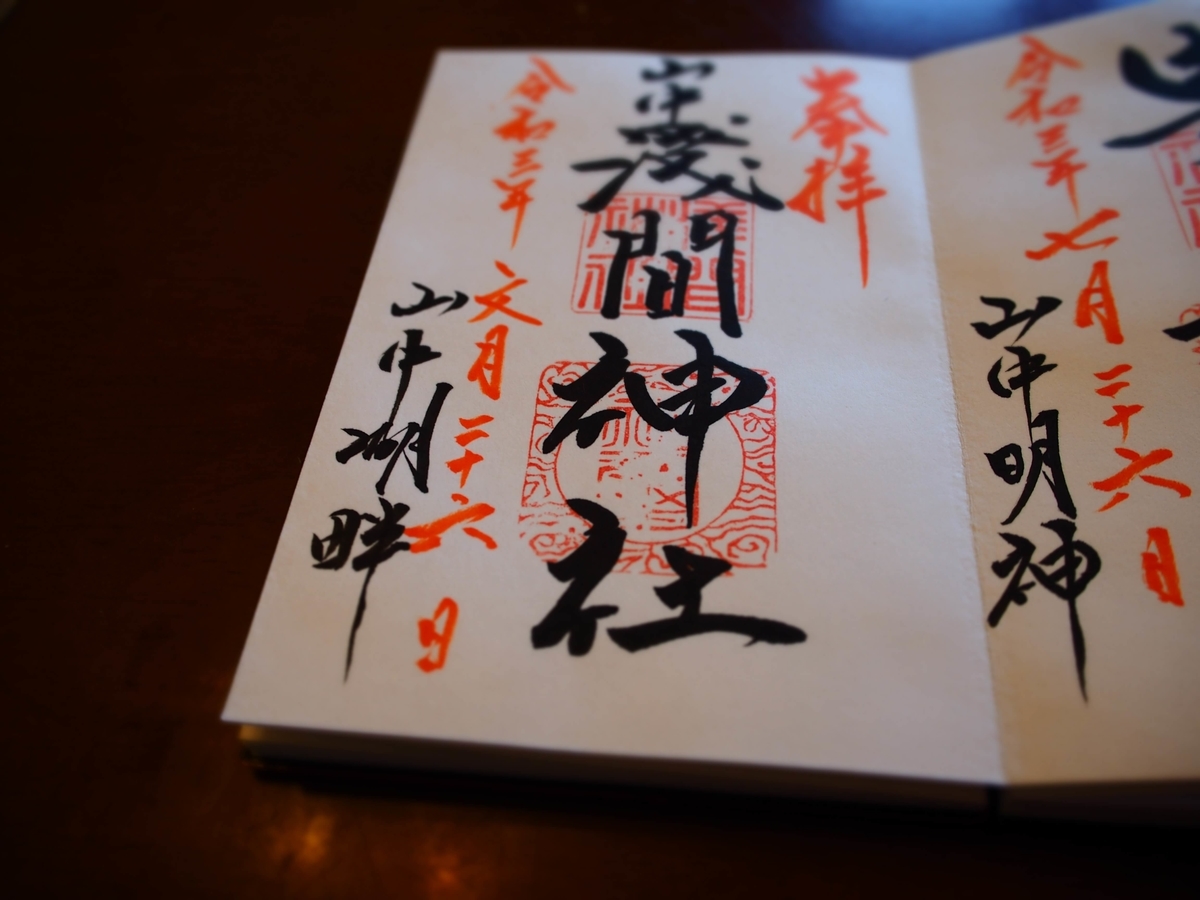 令和三年七月二十六日
山中明神
奉拝
山中淺間神社
令和三年文月二十六日
山中湖畔